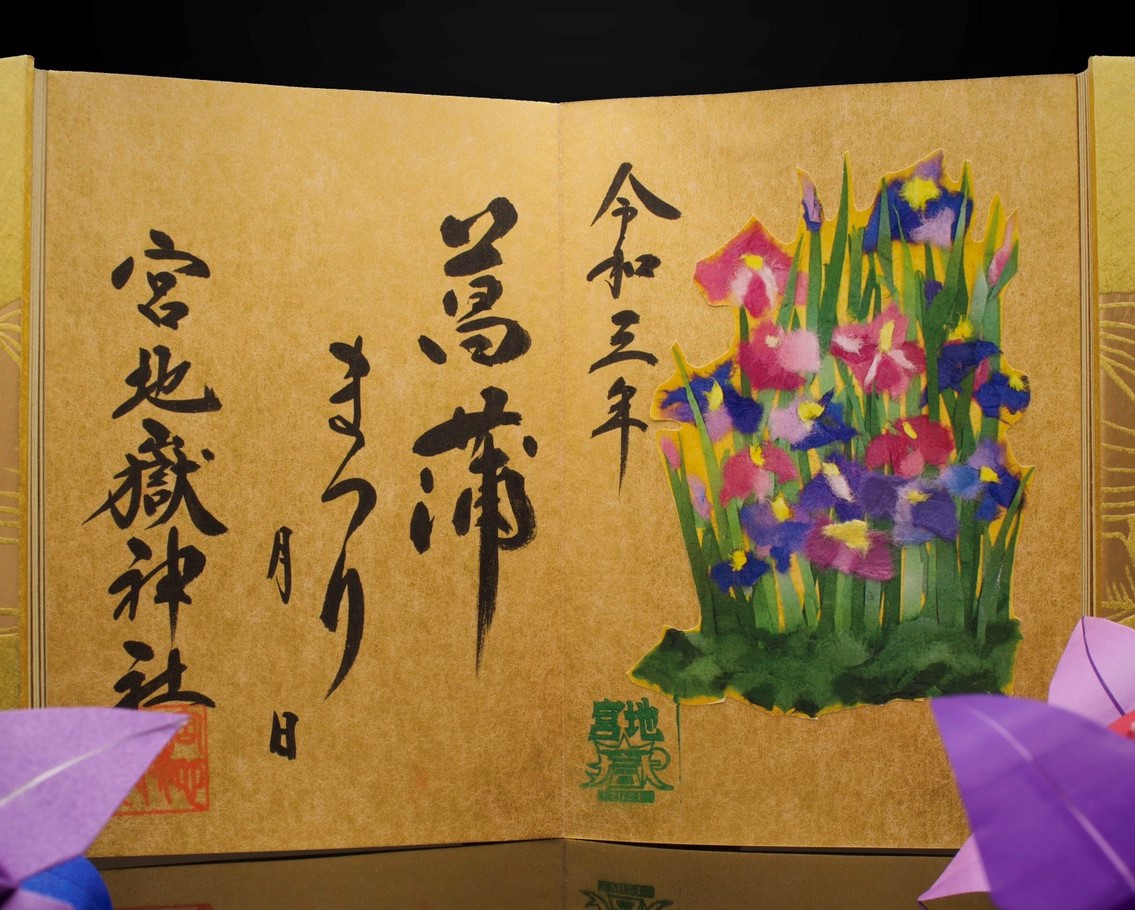 令和三年
菖蒲
まつり
月 日
宮地嶽神社
宮地